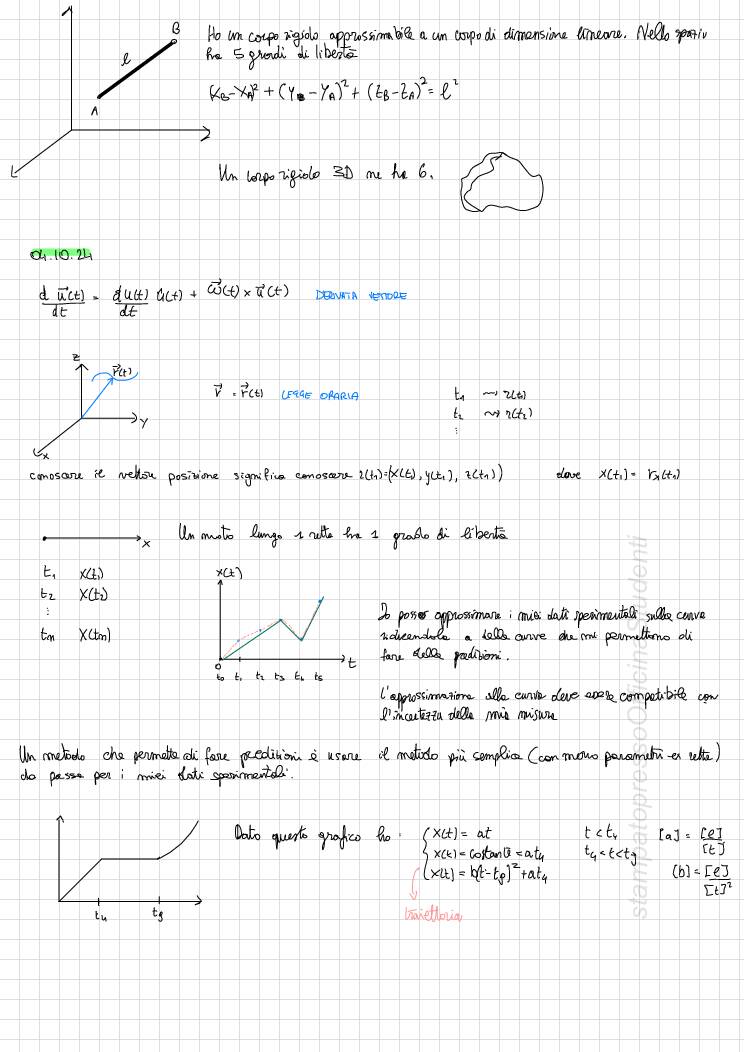 B
Ho un corpo rigido approssimabile a un corpo di dimensione lineare. Nello spazio
ha 5 gradi di libertà
l
A
(x_B-x_A)² + (y_B-y_A)² + (z_B-z_A)² = l²
Un corpo rigido 3D ne ha 6.
04.10.24
d u⃗(t)/dt = du(t)/dt û(t) + ω⃗(t) × u⃗(t) DERIVATA VETTORE
z
r⃗(t)
y
x
r⃗ = r⃗(t) LEGGE ORARIA
t₁ ⇝ r(t₁)
t₂ ⇝ r(t₂)
⋮
conoscere il vettore posizione significa conoscere r(t₁)=(x(t₁), y(t₁), z(t₁)) dove x(t₁) = rₓ(t₁)
x
Un moto lungo 1 retta ha 1 grado di libertà
t₁ x(t₁)
t₂ x(t₂)
⋮
tm x(tm)
x(t)
0
t₀ t₁ t₂ t₃ t₄ t₅ t
Io posso approssimare i miei dati sperimentali sulla curva
riducendola a delle curve che mi permettono di
fare delle predizioni.
L'approssimazione alla curva deve essere compatibile con
l'incertezza della mia misura
Un metodo che permette di fare predizioni è usare il metodo più semplice (con meno parametri-es rette)
da passa per i miei dati sperimentali.
t₄ t₈
Dato questo grafico ho:
x(t) = at t<t₄ [a] = [l]/[t]
x(t) = costante = at₄ t₄<t<t₈
x(t) = b(t-t₈)² + at₄ [b] = [l]/[t]²
traiettoria
stampatopressoOfficinaStudenti